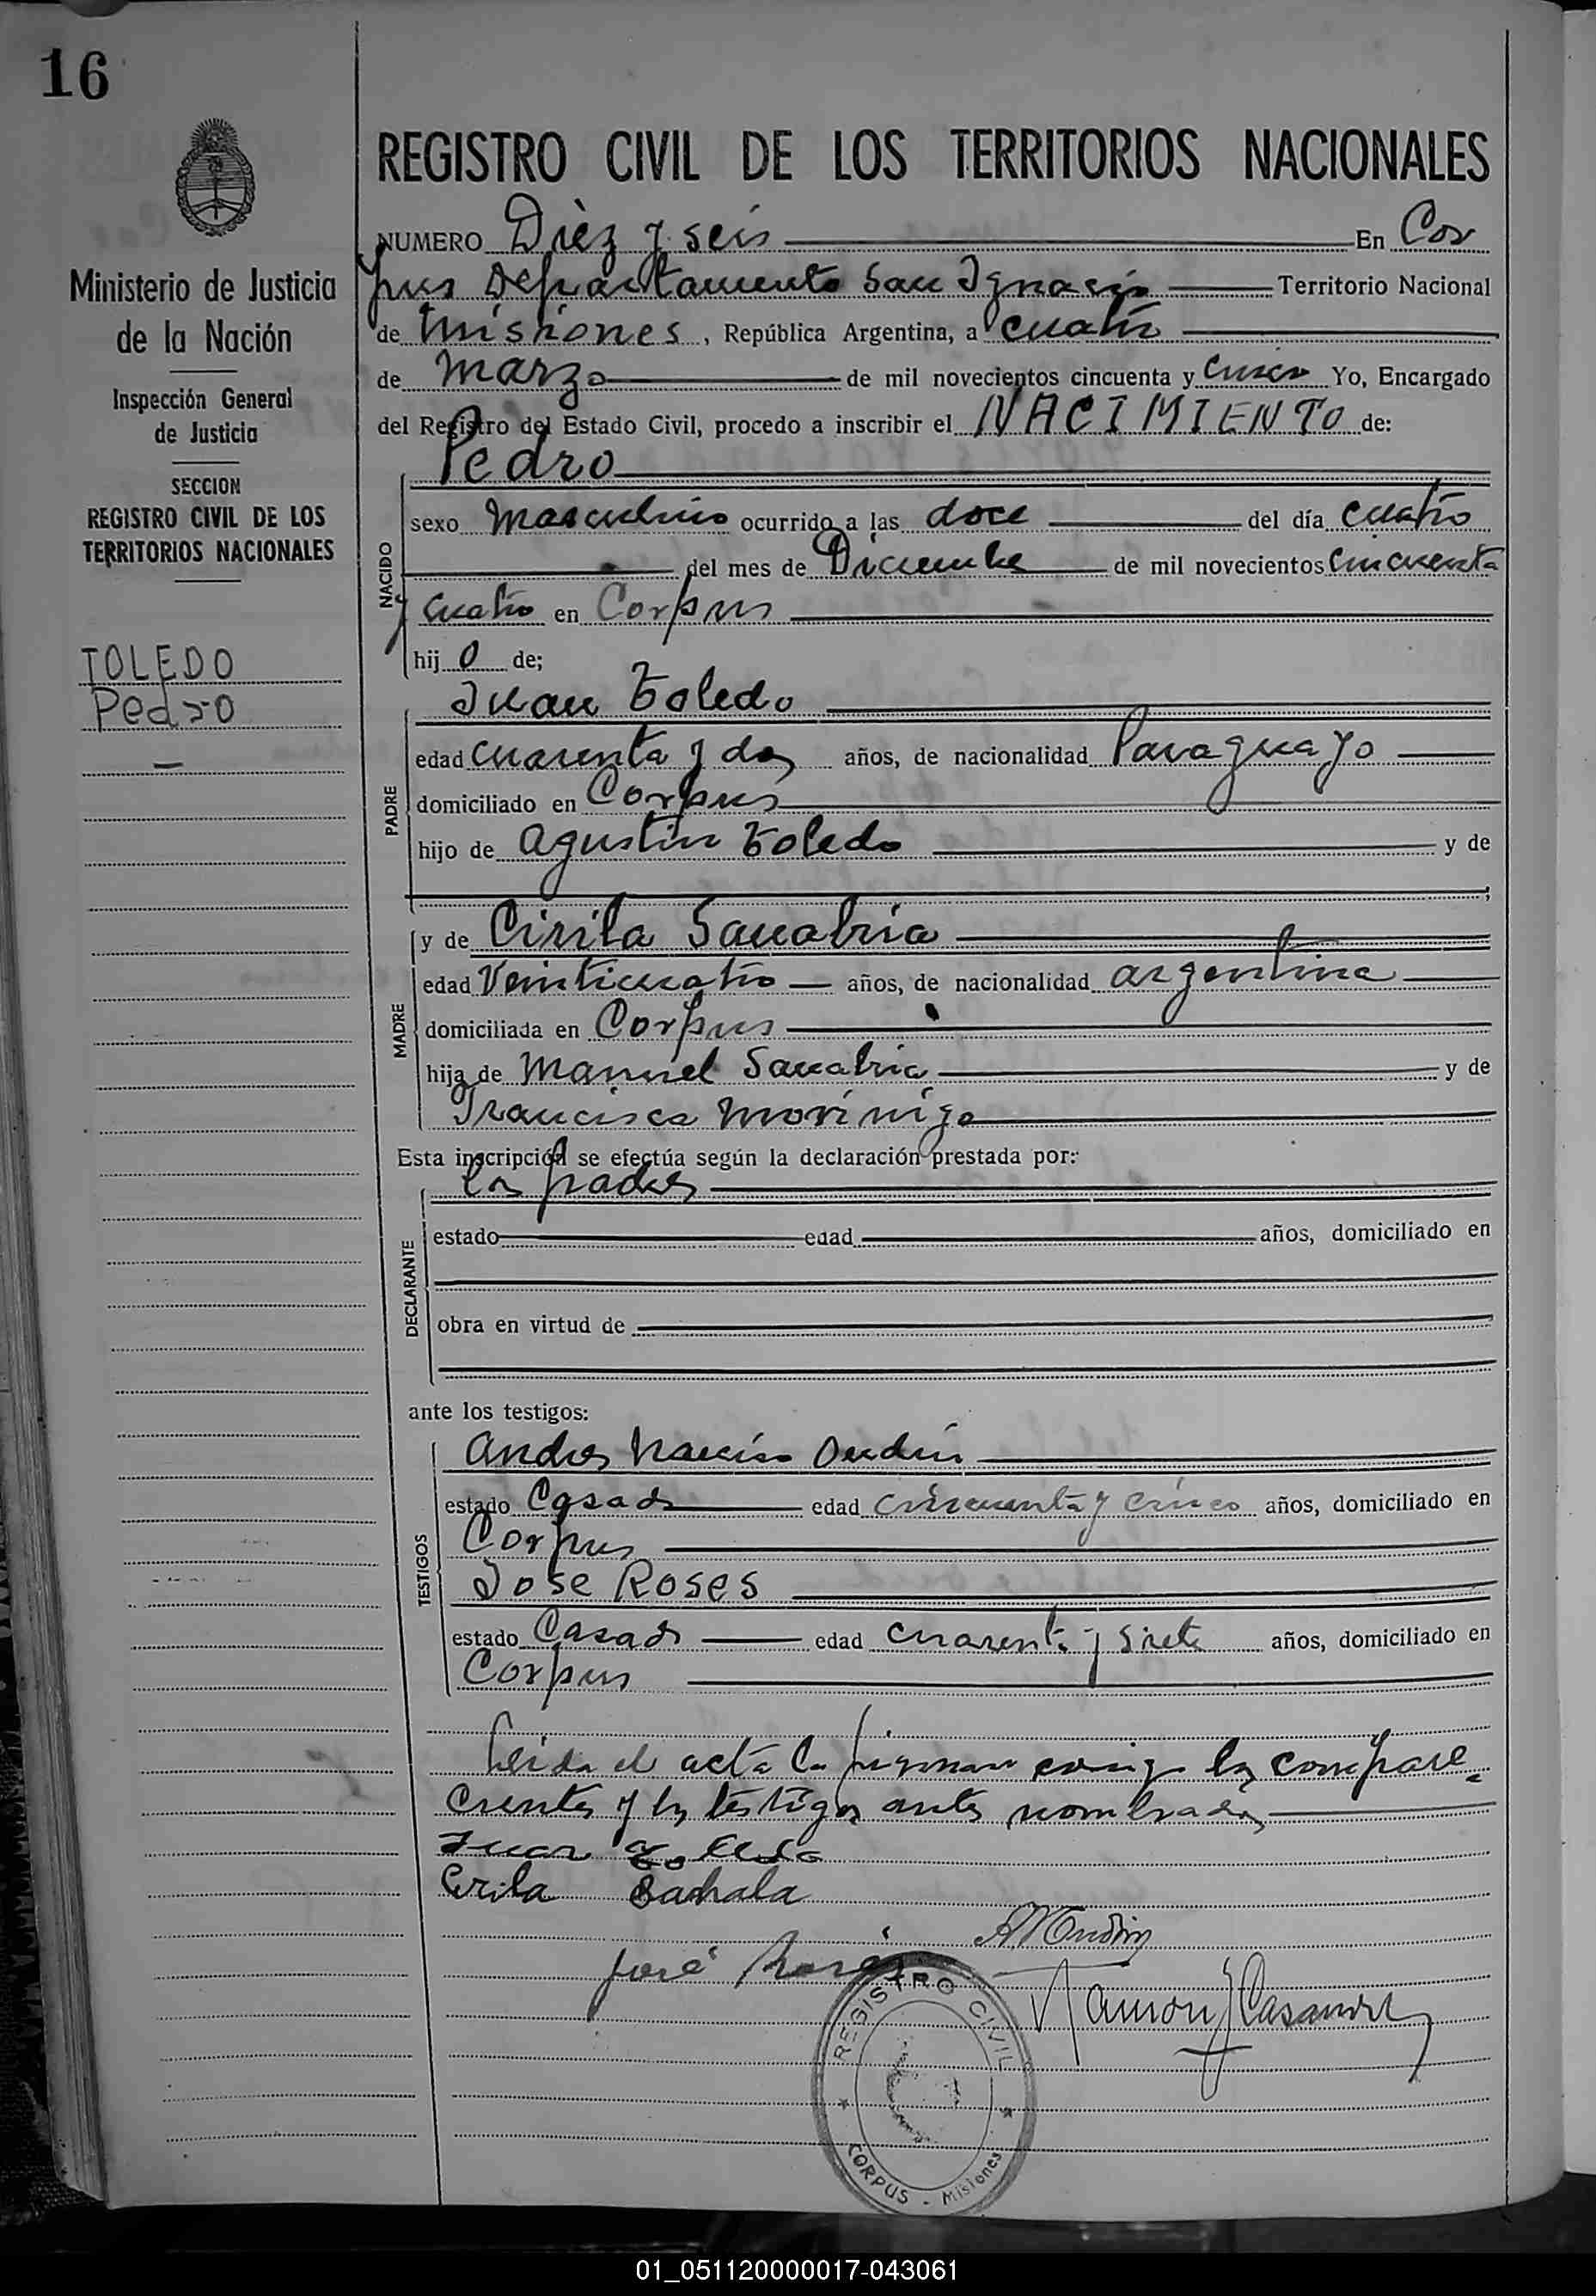 16
REGISTRO CIVIL DE LOS TERRITORIOS NACIONALES
Ministerio de Justicia
de la Nación
Inspección General
de Justicia
SECCION
REGISTRO CIVIL DE LOS
TERRITORIOS NACIONALES
TOLEDO
Pedro
NUMERO Dièz y seis En Cor
pus Departamento San Ignacio Territorio Nacional
de Misiones, República Argentina, a cuatro
de Marzo de mil novecientos cincuenta y cinco Yo, Encargado
del Registro del Estado Civil, procedo a inscribir el NACIMIENTO de:
Pedro
NACIDO
sexo Masculino ocurrido a las doce del día cuatro
del mes de Diciembre de mil novecientos cincuenta
y cuatro en Corpus
hijo de;
Juan Toledo
PADRE
edad cuarenta y dos años, de nacionalidad Paraguayo
domiciliado en Corpus
hijo de Agustin Toledo y de
;
MADRE
y de Cirila Sanabria
edad Veinticuatro años, de nacionalidad argentina
domiciliada en Corpus
hija de Manuel Sanabria y de
Francisca Morinigo
Esta inscripción se efectúa según la declaración prestada por:
los padres
DECLARANTE
estado edad años, domiciliado en
obra en virtud de
ante los testigos:
TESTIGOS
Andres Narciso Oudin
estado Casado edad cincuenta y cinco años, domiciliado en
Corpus
Jose Roses
estado Casado edad cuarenta y siete años, domiciliado en
Corpus
Leida el acta la firman conmigo los compare
cientes y los testigos antes nombrados
Juan Toledo
Cirila
José Roses
Ramon J Casanova
REGISTRO CIVIL
CORPUS - Misiones
01_051120000017-043061